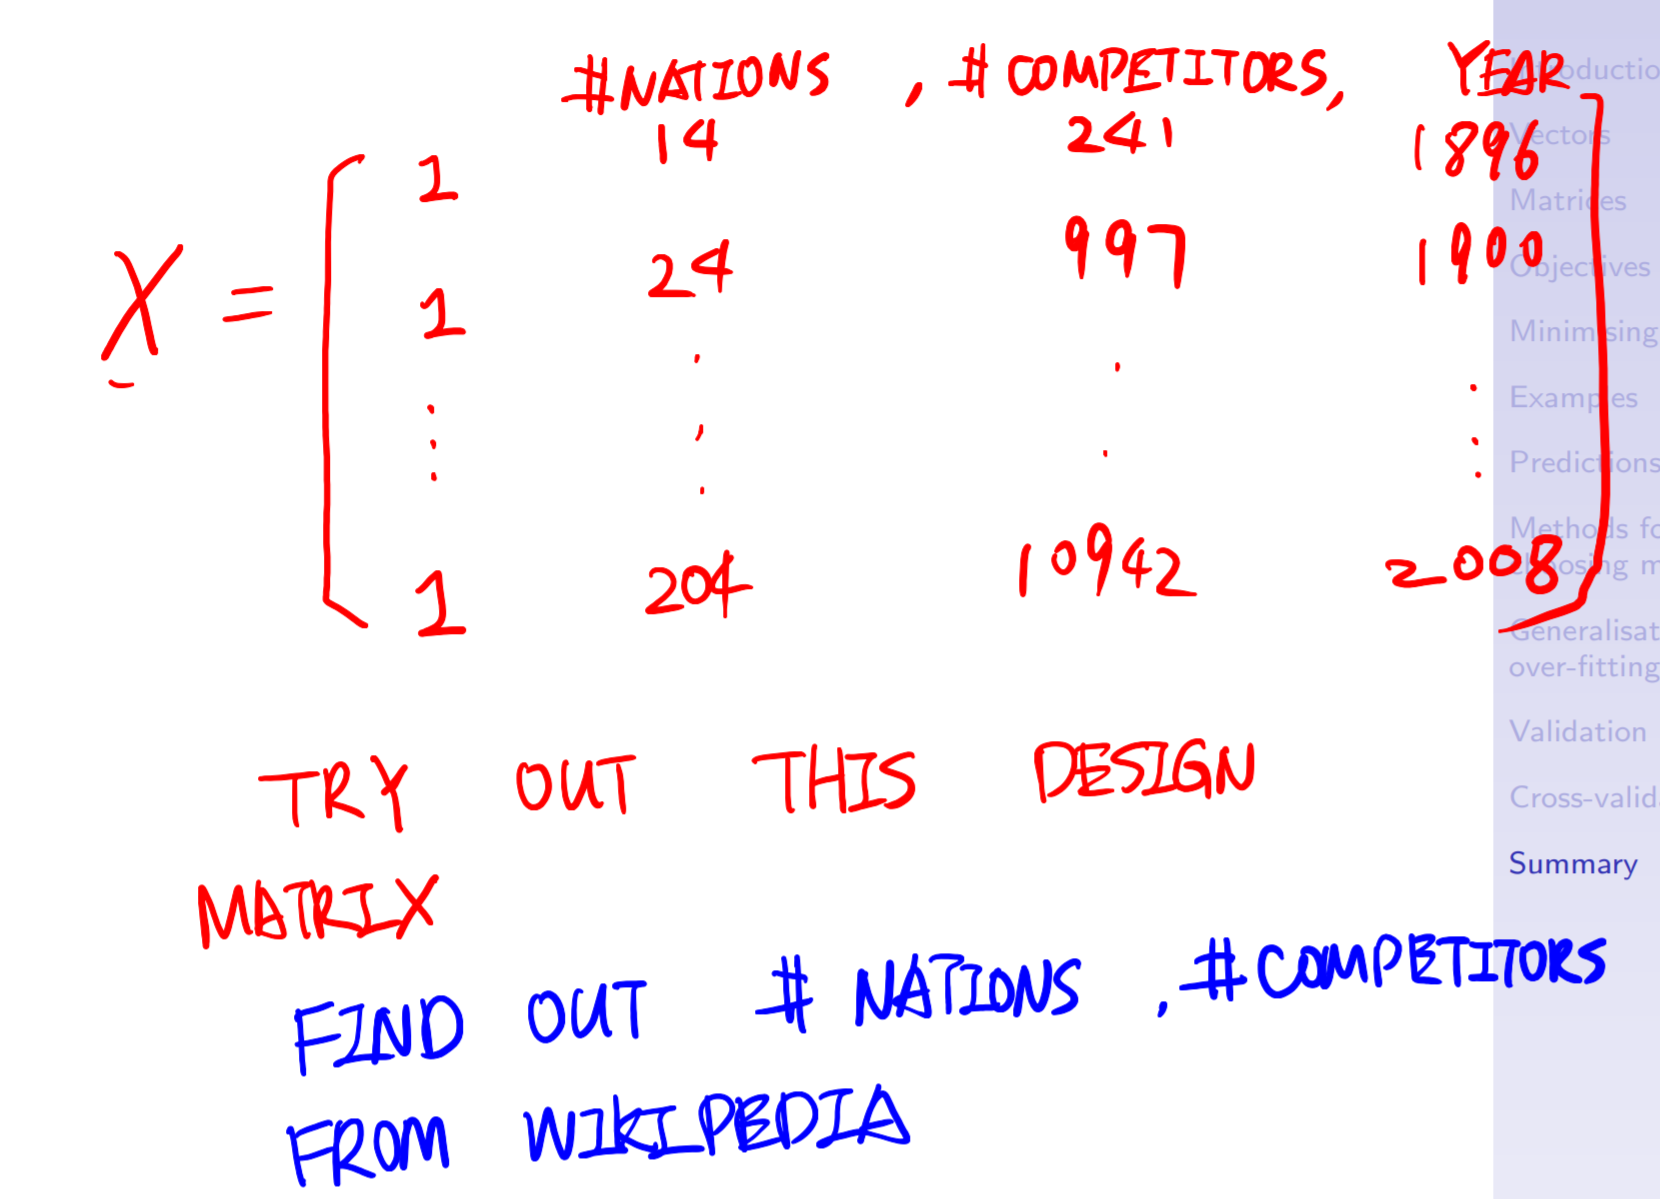 #NATIONS , #COMPETITORS, YEAR
1 14 241 1896
X = 1 24 997 1900
1 204 10942 2008
TRY OUT THIS DESIGN
MATRIX
FIND OUT # NATIONS , #COMPETITORS
FROM WIKIPEDIA
Introductio
Vectors
Matrices
Objectives
Minimising
Examples
Predictions
Methods fo
choosing m
Generalisat
over-fitting
Validation
Cross-valid
Summary